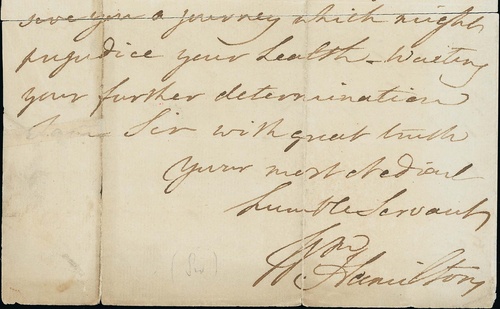 save you a journey which might
prejudice your health - Waiting
your further determination
I am Sir with great truth
your most obedient
humble Servant
Wm
Hamilton
(Sir)